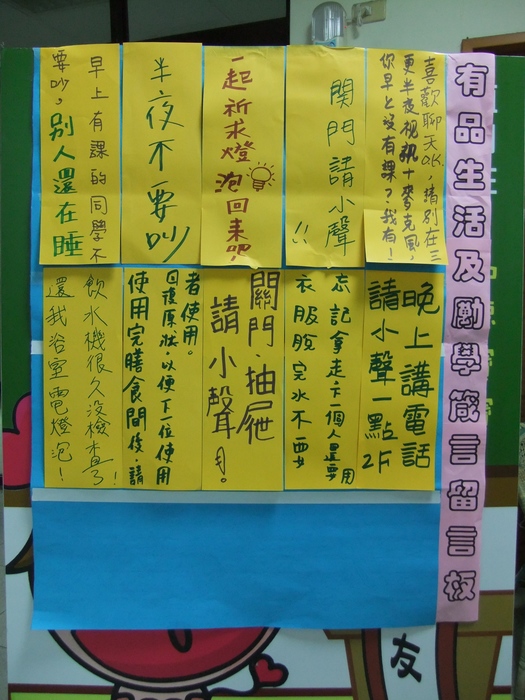 有品生活及勵學箴言留言板
喜歡聊天OK,請別在三
更半夜視訊+麥克風,
你早上沒有課?我有!
關門請小聲
!!
一起祈求燈
泡回來吧
半夜不要吵
早上有課的同學不
要吵,別人還在睡
晚上講電話
請小聲一點
2F
忘記拿走,下一個人還要用
衣服脫完水不要
關門、抽屜
請小聲
者使用。
回復原狀,以便下一位使用
使用完膳食間後,請
飲水機很久沒檢查了!
還我浴室電燈泡!
友